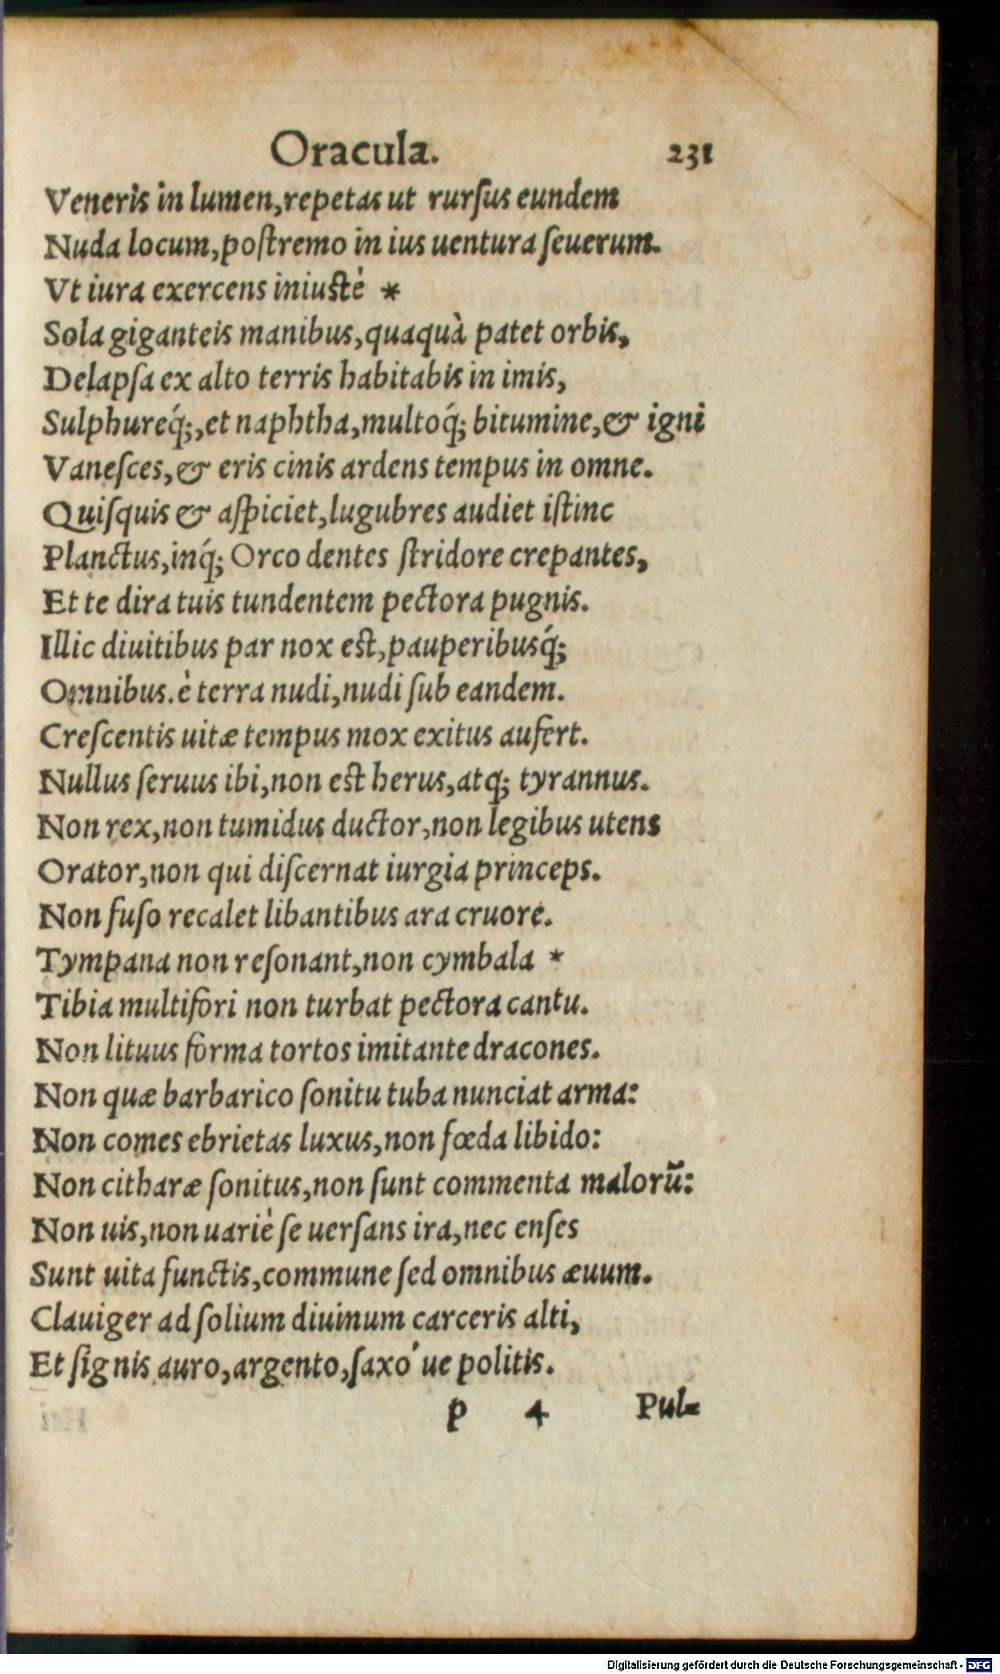 Oracula. 231
Veneris in lumen,repetas ut rurſus eundem
Nuda locum,poſtremo in ius uentura ſeuerum.
Vt iura exercens iniuſtè *
Sola giganteis manibus,quaquà patet orbis,
Delapſa ex alto terris habitabis in imis,
Sulphureq́;,et naphtha,multoq́; bitumine,& igni
Vaneſces,& eris cinis ardens tempus in omne.
Quiſquis & aſpiciet,lugubres audiet iſtinc
Planctus,inq́; Orco dentes ſtridore crepantes,
Et te dira tuis tundentem pectora pugnis.
Illic diuitibus par nox eſt,pauperibusq́;
Omnibus.è terra nudi,nudi ſub eandem.
Creſcentis uitæ tempus mox exitus aufert.
Nullus ſeruus ibi,non eſt herus,atq; tyrannus.
Non rex,non tumidus ductor,non legibus utens
Orator,non qui diſcernat iurgia princeps.
Non fuſo recalet libantibus ara cruore.
Tympana non reſonant,non cymbala *
Tibia multifori non turbat pectora cantu.
Non lituus forma tortos imitante dracones.
Non quæ barbarico ſonitu tuba nunciat arma:
Non comes ebrietas luxus,non fœda libido:
Non citharæ ſonitus,non ſunt commenta malorũ:
Non uis,non uariè ſe uerſans ira,nec enſes
Sunt uita functis,commune ſed omnibus æuum.
Clauiger ad ſolium diuinum carceris alti,
Et ſignis auro,argento,ſaxo'ue politis.
p 4 Pul=
Digitalisierung gefördert durch die Deutsche Forschungsgemeinschaft - DFG